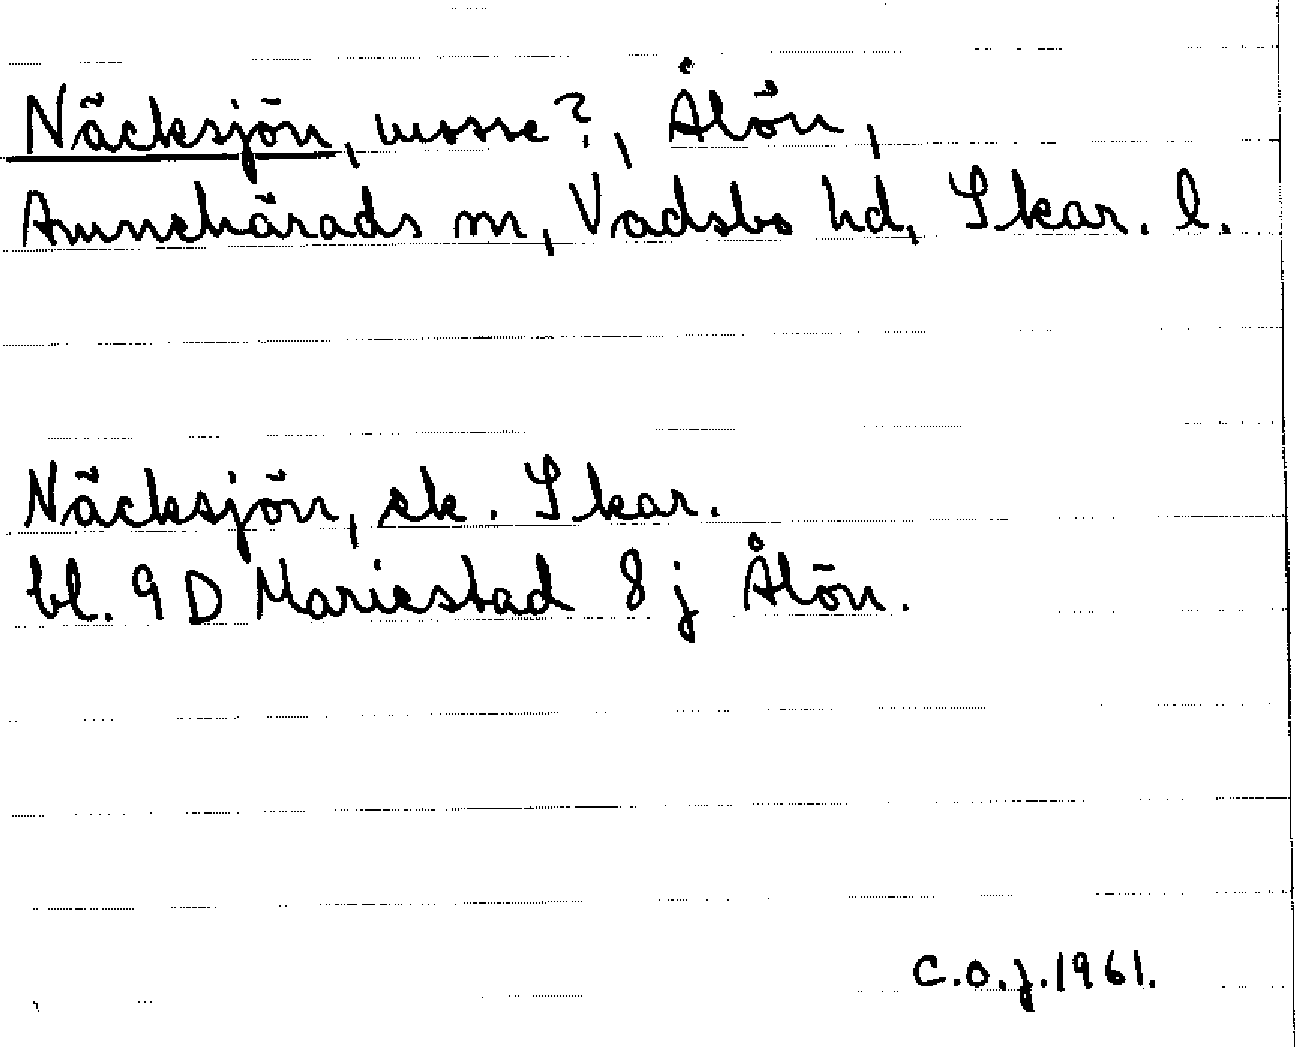 Näcksjön, mosse?, Ålön,
Amnehärads sn, Vadsbo hd, Skar. l.
Näcksjön, ek. Skar.
bl. 9 D Mariestad 8 j Ålön.
C.O.J. 1961.